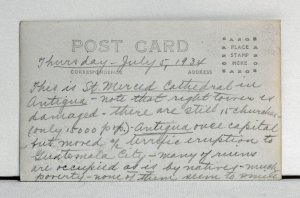 POST CARD
AZO
PLACE
STAMP
HERE
AZO
CORRESPONDENCE ADDRESS
Thursday - July 5, 1934
This is St. Merced Cathedral in
Antigua - note that right tower is
damaged - there are still 15 churches
(only 10000 pop.) - Antigua once capital
but moved terrific eruption to
Guatemala City - many of ruins
are occupied as is by natives - much
poverty - none of them seem to